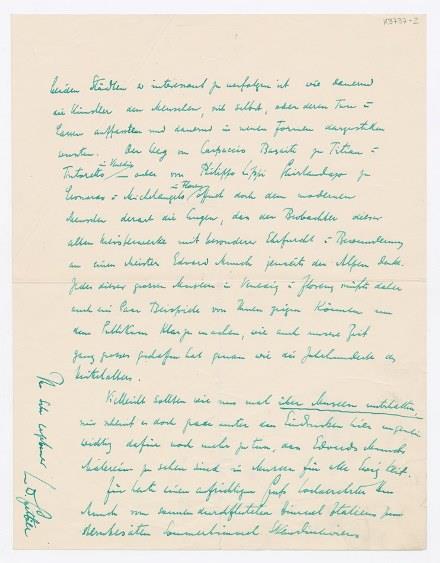 K3737-2
beiden Städten so interessant zu verfolgen ist wie dauernd
die Künstler den Menschen, sich selbst, oder deren Tun u
Lassen auffassten und dauernd in neuen Formen dargestellt
wurden. Der Weg von Carpaccio Basaiti zu Titian u
in Venedig
Tintoretto oder von Philippo Lippi Ghirlandajo zu
in Florenz
Leonardo u Michelangelo öffnet doch dem modernen
Menschen derart die Augen, das der Beobachter dieser
alten Meisterwerke mit besonderer Ehrfurcht u Bewunderung
an einen Meister Edvard Munch jenseits der Alpen denkt.
Jedes dieser grossen Museen in Venedig u Florenz müsste daher
auch ein Paar Beispiele von Ihnen zeigen können um
dem Publikum klar zu machen, wie auch unsere Zeit
ganz grosses geschaffen hat genau wie die Jahrhunderte des
Mittelalters.
Vielleicht sollten wir uns mal über Museen unterhalten,
mir scheint es doch ganz unter den Eindrücken hier
wichtig dafür noch mehr zu tun, das Edvard Munchs
Malereien zu sehen sind in Museen für alle
Für heute einen aufrichtigen Gruss hochverehrter Herr
Munch vom sonnendurchfluteten Himmel Italiens zum
Sommerhimmel Skandinaviens
Ihr sehr ergebener